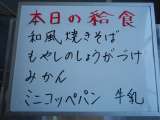 本日の給食
和風焼きそば
もやしのしょうがづけ
みかん
ミニコッペパン 牛乳